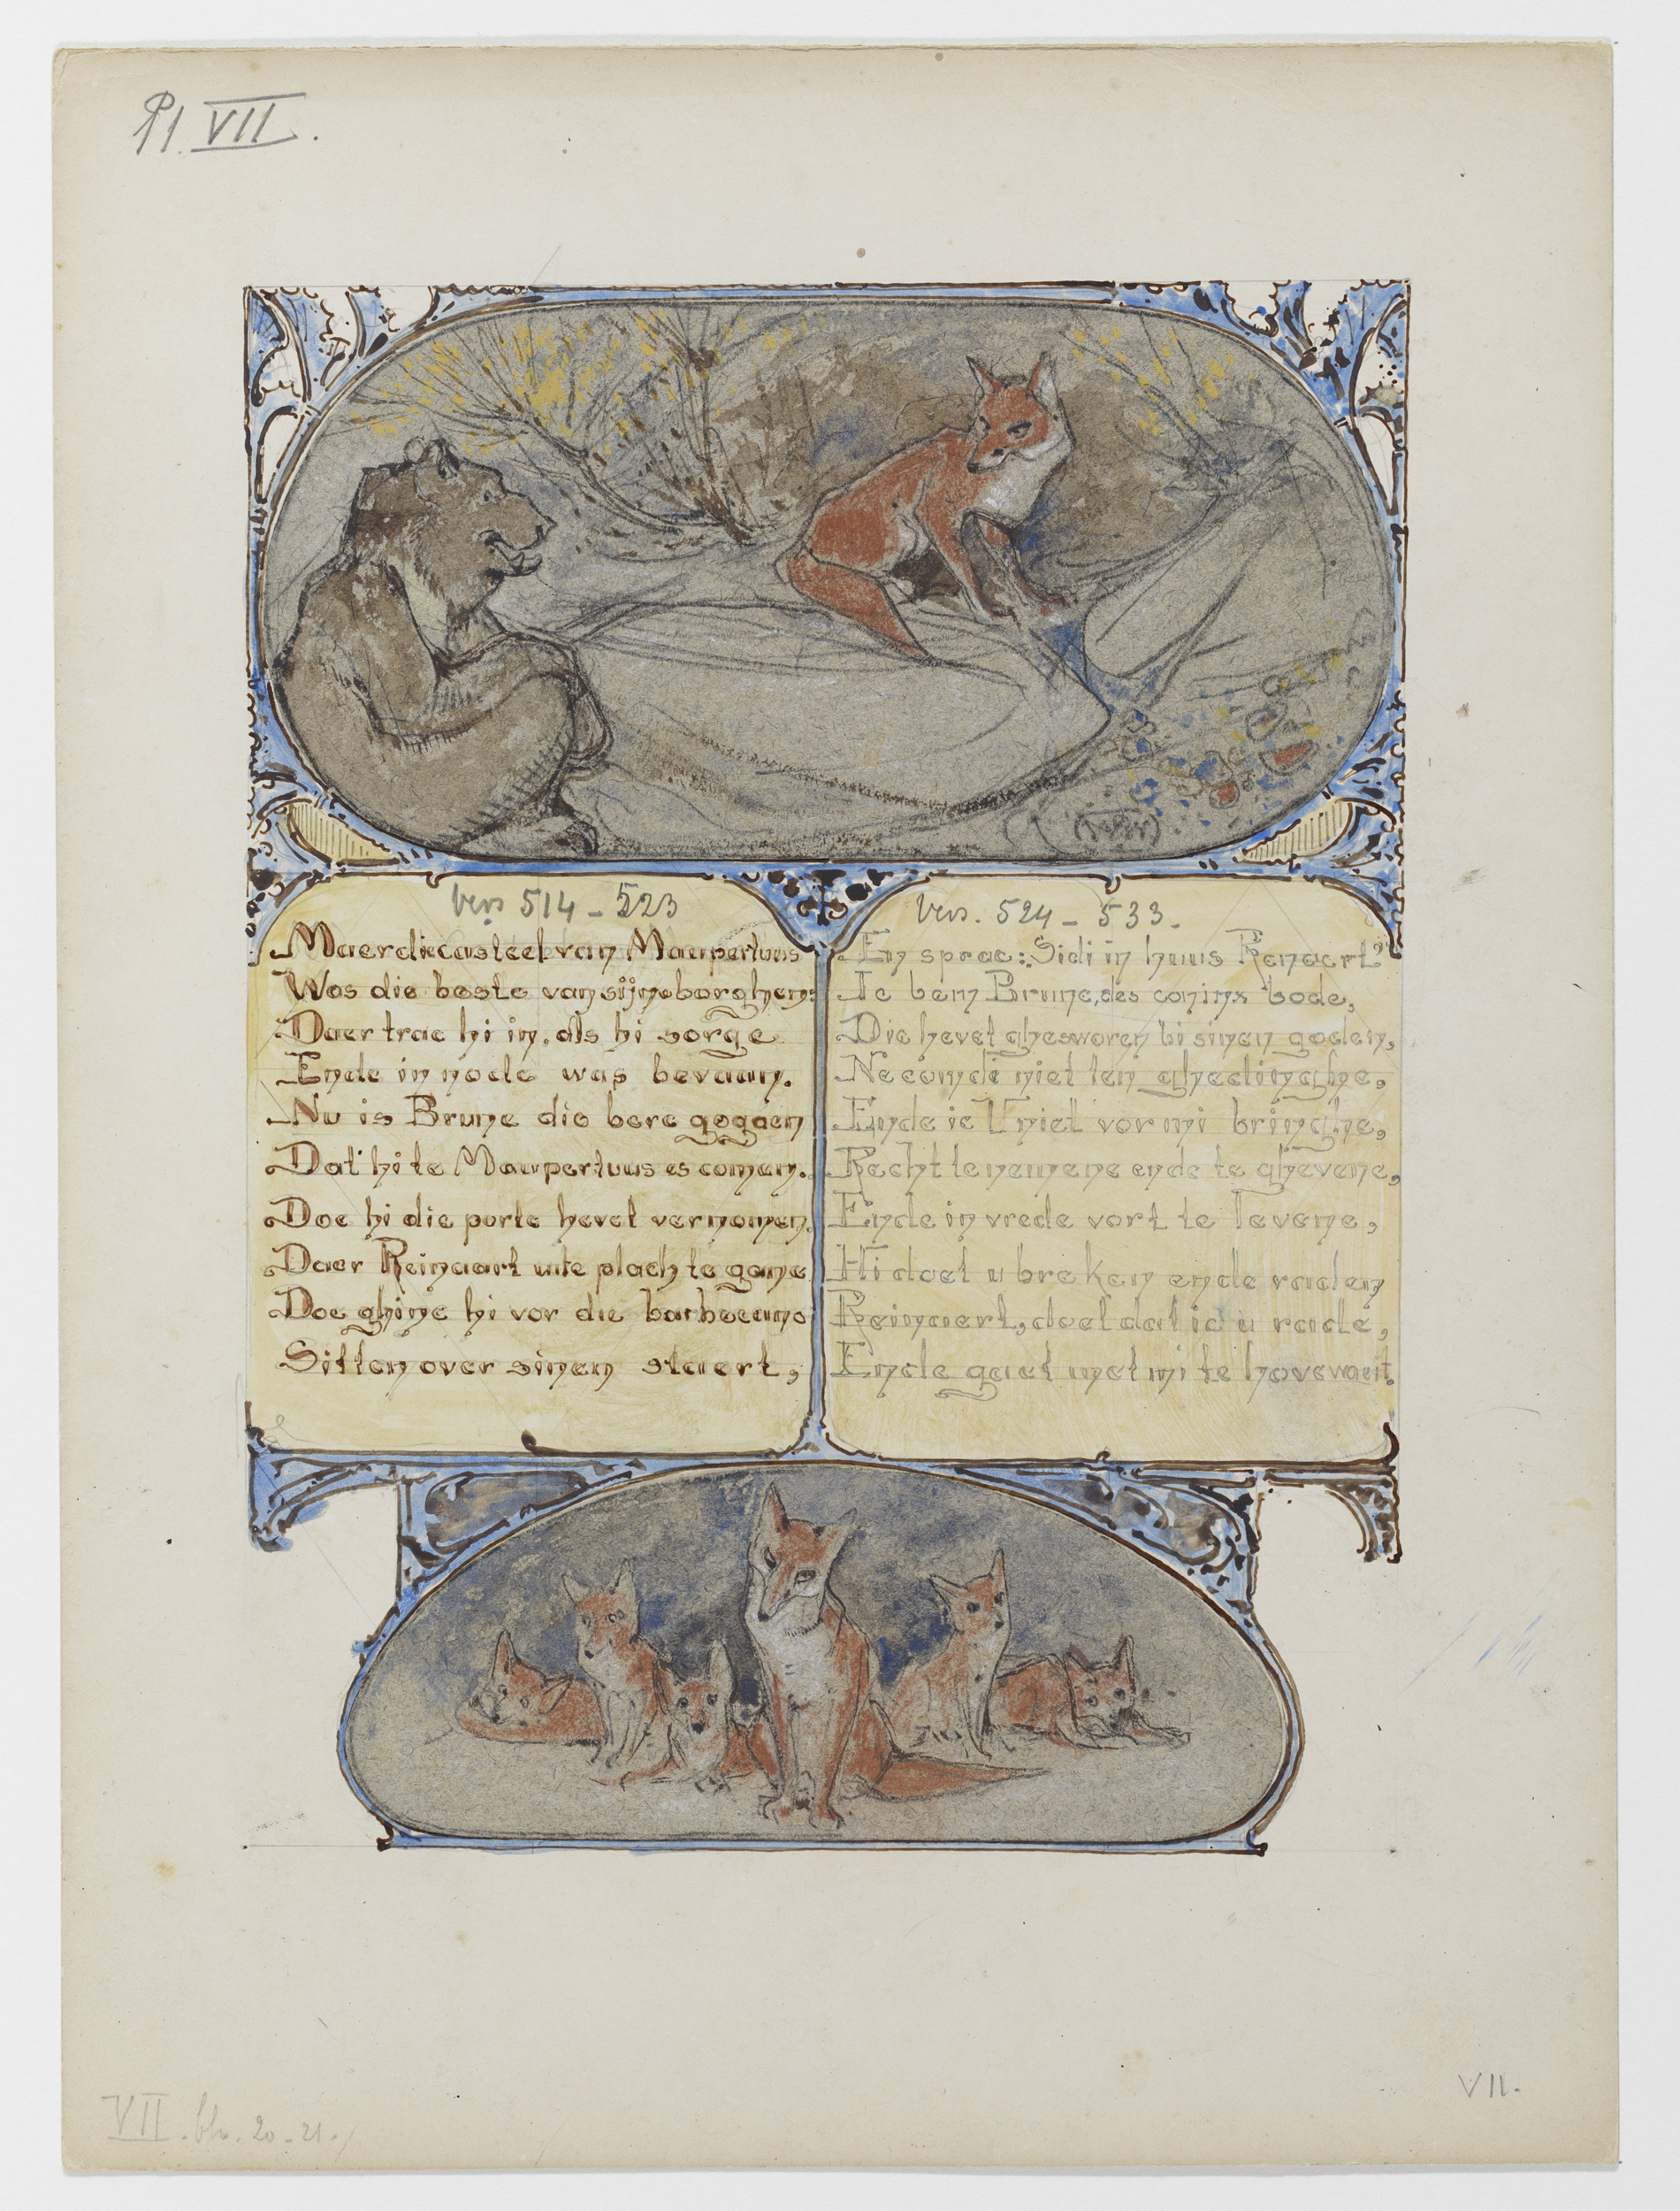 Pl. VII.
Vers 514 - 523
Maer die casteel van Maupertuus
Was die beste van sijne borghen:
Daer trac hi in, als hi sorge
Ende in node was bevaan.
Nu is Brune die bere gegaen
Dat hi te Maupertuus es comen.
Doe hi die porte hevet vernomen,
Daer Reinaart ute plach te gane
Doe ghine hi vor die barbecane
Sitten over sinen staert,
Vers. 524 - 533.
En sprac: Sidi in huus Renaert?
Ic bem Brune, des coninx bode,
Die hevet ghesworen bi sinen goden,
Ne comdi niet ten ghedinghe,
Ende ic U niet vor mi bringhe,
Recht te nemene ende te ghevene,
Ende in vrede vort te levene,
Hi doet u breken ende raden
Reinaert, doet dat ic u rade,
Ende gaet met mi te hovewaert.
VII. blz. 20-21.
VII.